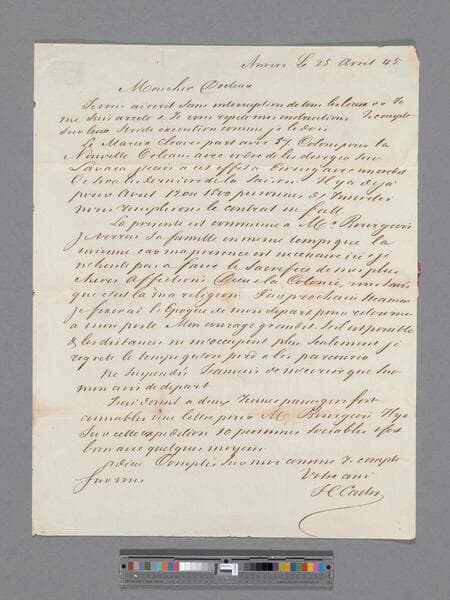 Anvers Le 25 Avril 45
Mon cher Docteur
Je vous ai écrit sans interruption de tous les lieux où Je
me suis arrêté & Je vous repete mes instructions. Je compte
sur leur stricte execution comme je le dois
Le Marcia Cleaves part avec 37 Colons pour la
Nouvelle Orleans avec ordre de les diriger sur
Lavaca
Ce sera le dernier de la Saison. Il y a déjà
pour Aout 1200 a 1500 personnes
nous remplirons le contrat in full
La presente est commune a Mr Bourgeois
Je verrai Sa famille en meme temps que la
mienne car ma presence est necessaire ici & je
n'hesite pas a faire le Sacrifice de mes plus
cheres Affections Dieu & la Colonie, vous savez
que c'est là ma religion. Par prochain Steamer
Je fixerai l'Epoque de mon depart pour retourner
a mon poste. Mon courage grandit S'il est possible
& les distances ne m'occupent plus Seulement je
regrette le temps qu'on perd a les parcourir
Ne Suspendés Jamais de m'ecrire que Sur
mon avis de depart
J'ai donné a deux Jeunes passagers fort
aimables une lettre pour Mr Bourgeois Il y a
Sur cette expedition 10 personnes sociables & fort
bien avec quelques moyens
Adieu Comptés Sur moi comme Je compte
Sur vous
Votre ami
H Castro